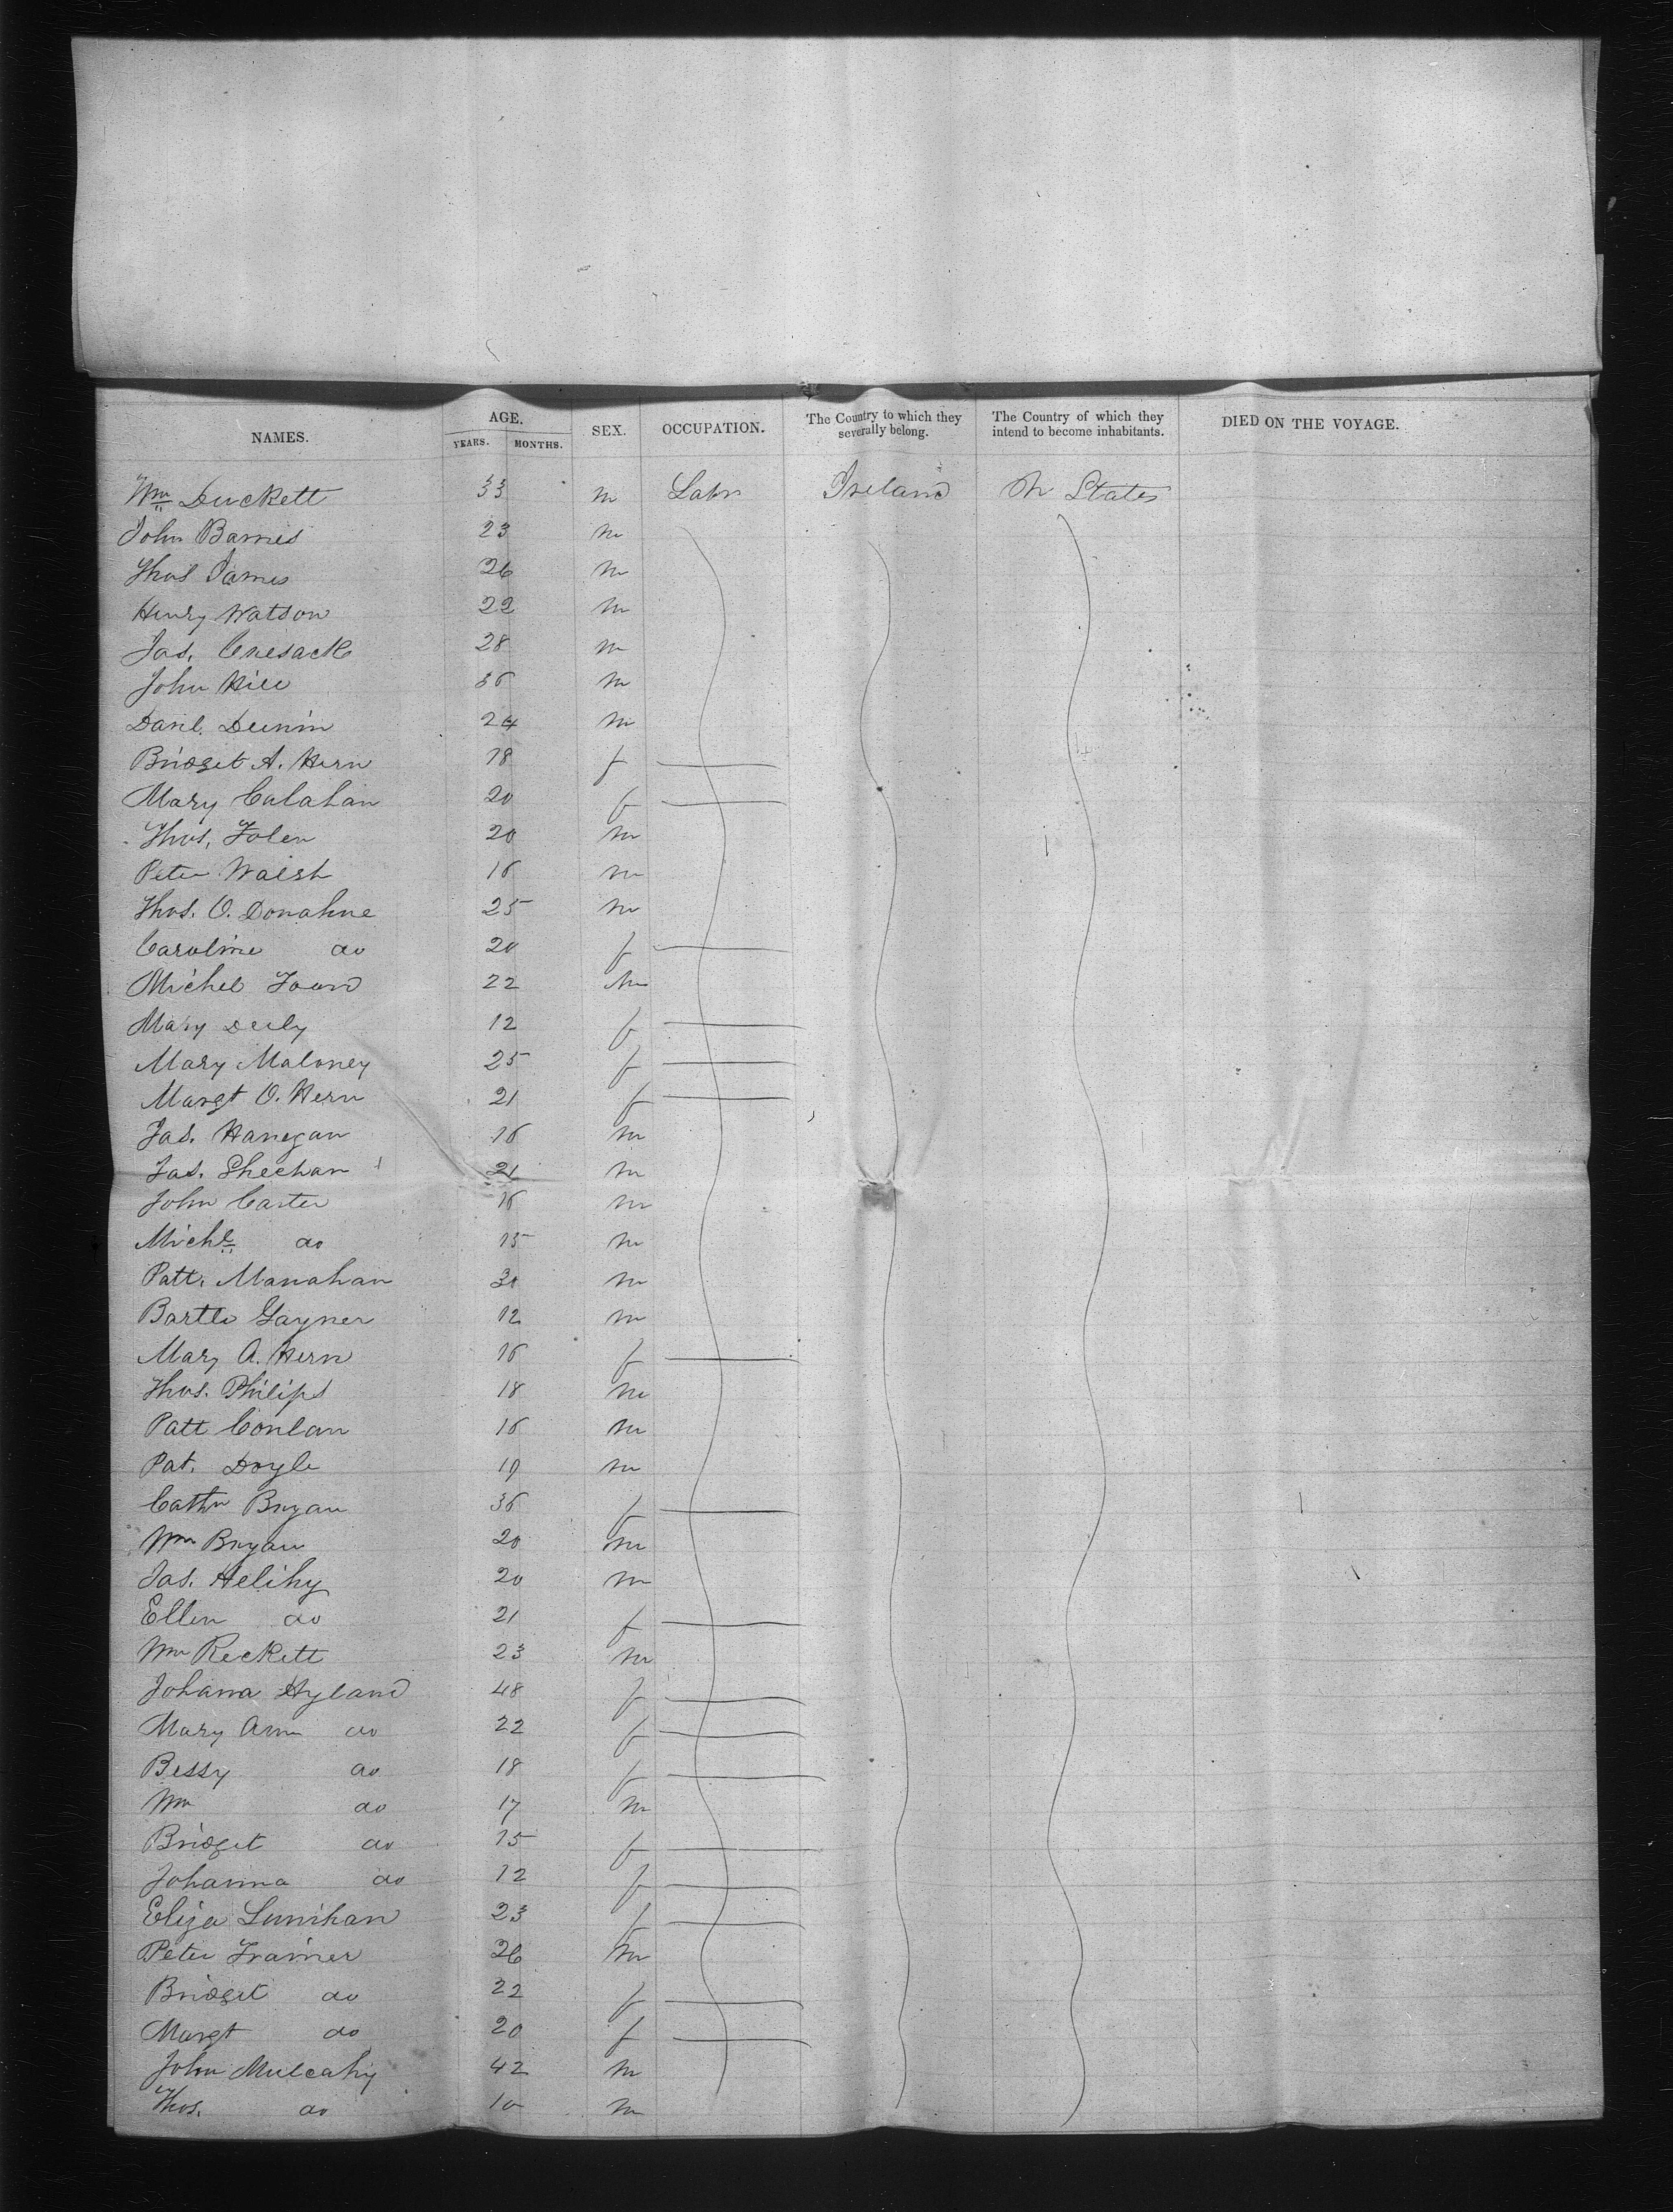 NAMES. AGE. YEARS. MONTHS. SEX. OCCUPATION. The Country to which they severally belong. The Country of which they intend to become inhabitants. DIED ON THE VOYAGE.
Wm Duckett 33 m Labr Ireland Un States
John Barnes 23 m
Thos James 26 m
Henry Watson 22 m
Jas. 28 m
John Hill 36 m
Danl. 24 m
Bridget A. Hern 18 f
Mary Calahan 20 f
Thos. Folen 20 m
Peter Walsh 16 m
Thos. O. Donahue 25 m
Caroline do 20 f
Michel 22 m
Mary 12 f
Mary Maloney 25 f
Margt O. Hern 21 f
Jas. Hanegan 16 m
Jas. Sheehan 21 m
John Carter 16 m
Michl do 15 m
Patt. Manahan 30 m
Bartle Gayner 12 m
Mary A. Hern 16 f
Thos. Philips 18 m
Patt Conlan 16 m
Pat. Doyle 19 m
Cathn Bryan 36 f
Wm Bryan 20 m
Jas. Helihy 20 m
Ellen do 21 f
Wm Reckett 23 m
Johana Hyland 48 f
Mary Ann do 22 f
Bessy do 18 f
Wm do 17 m
Bridget do 15 f
Johanna do 12 f
Eliza Lunihan 23 f
Peter Trainer 26 m
Bridget do 22 f
Margt do 20 f
John Mulcahy 42 m
Thos. do 10 m